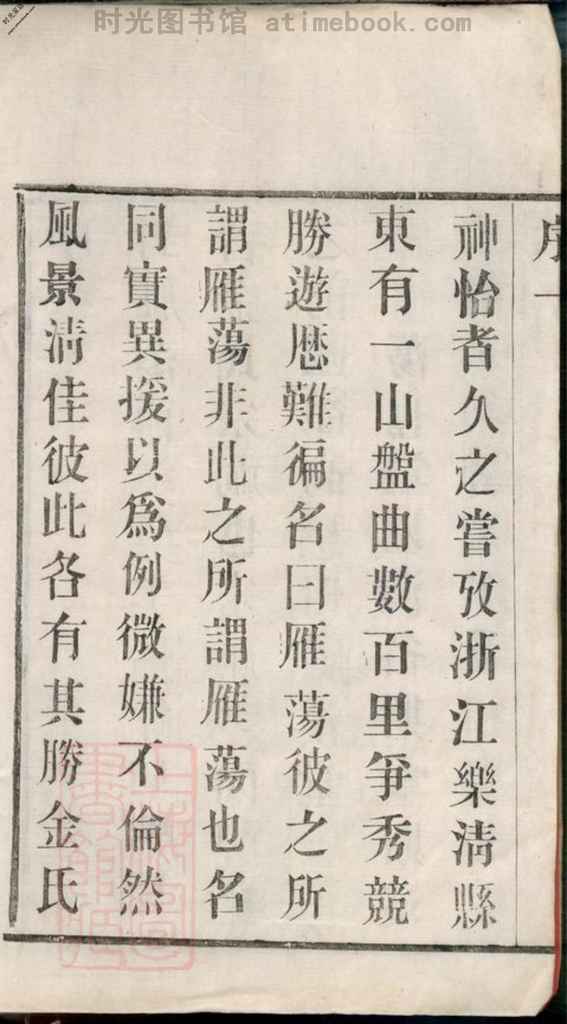 时光图书馆 atimebook.com
神怡者久之嘗攷浙江樂清縣
東有一山盤曲數百里爭秀競
勝遊歷難徧名曰雁蕩彼之所
謂雁蕩非此之所謂雁蕩也名
同實異援以為例微嫌不倫然
風景清佳彼此各有其勝金氏